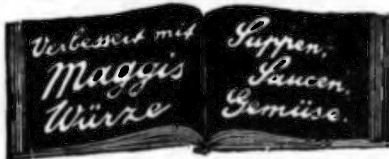 Verbessert mit
Maggis
Würze
Suppen,
Saucen,
Gemüse.